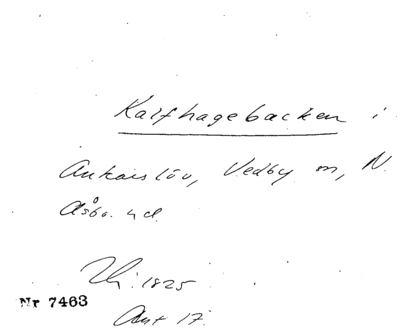 Kalfhagebacken i
Ankarslöv, Vedby sn, N.
Åsbo hd.
1825
Nr 7463
Akt 17.